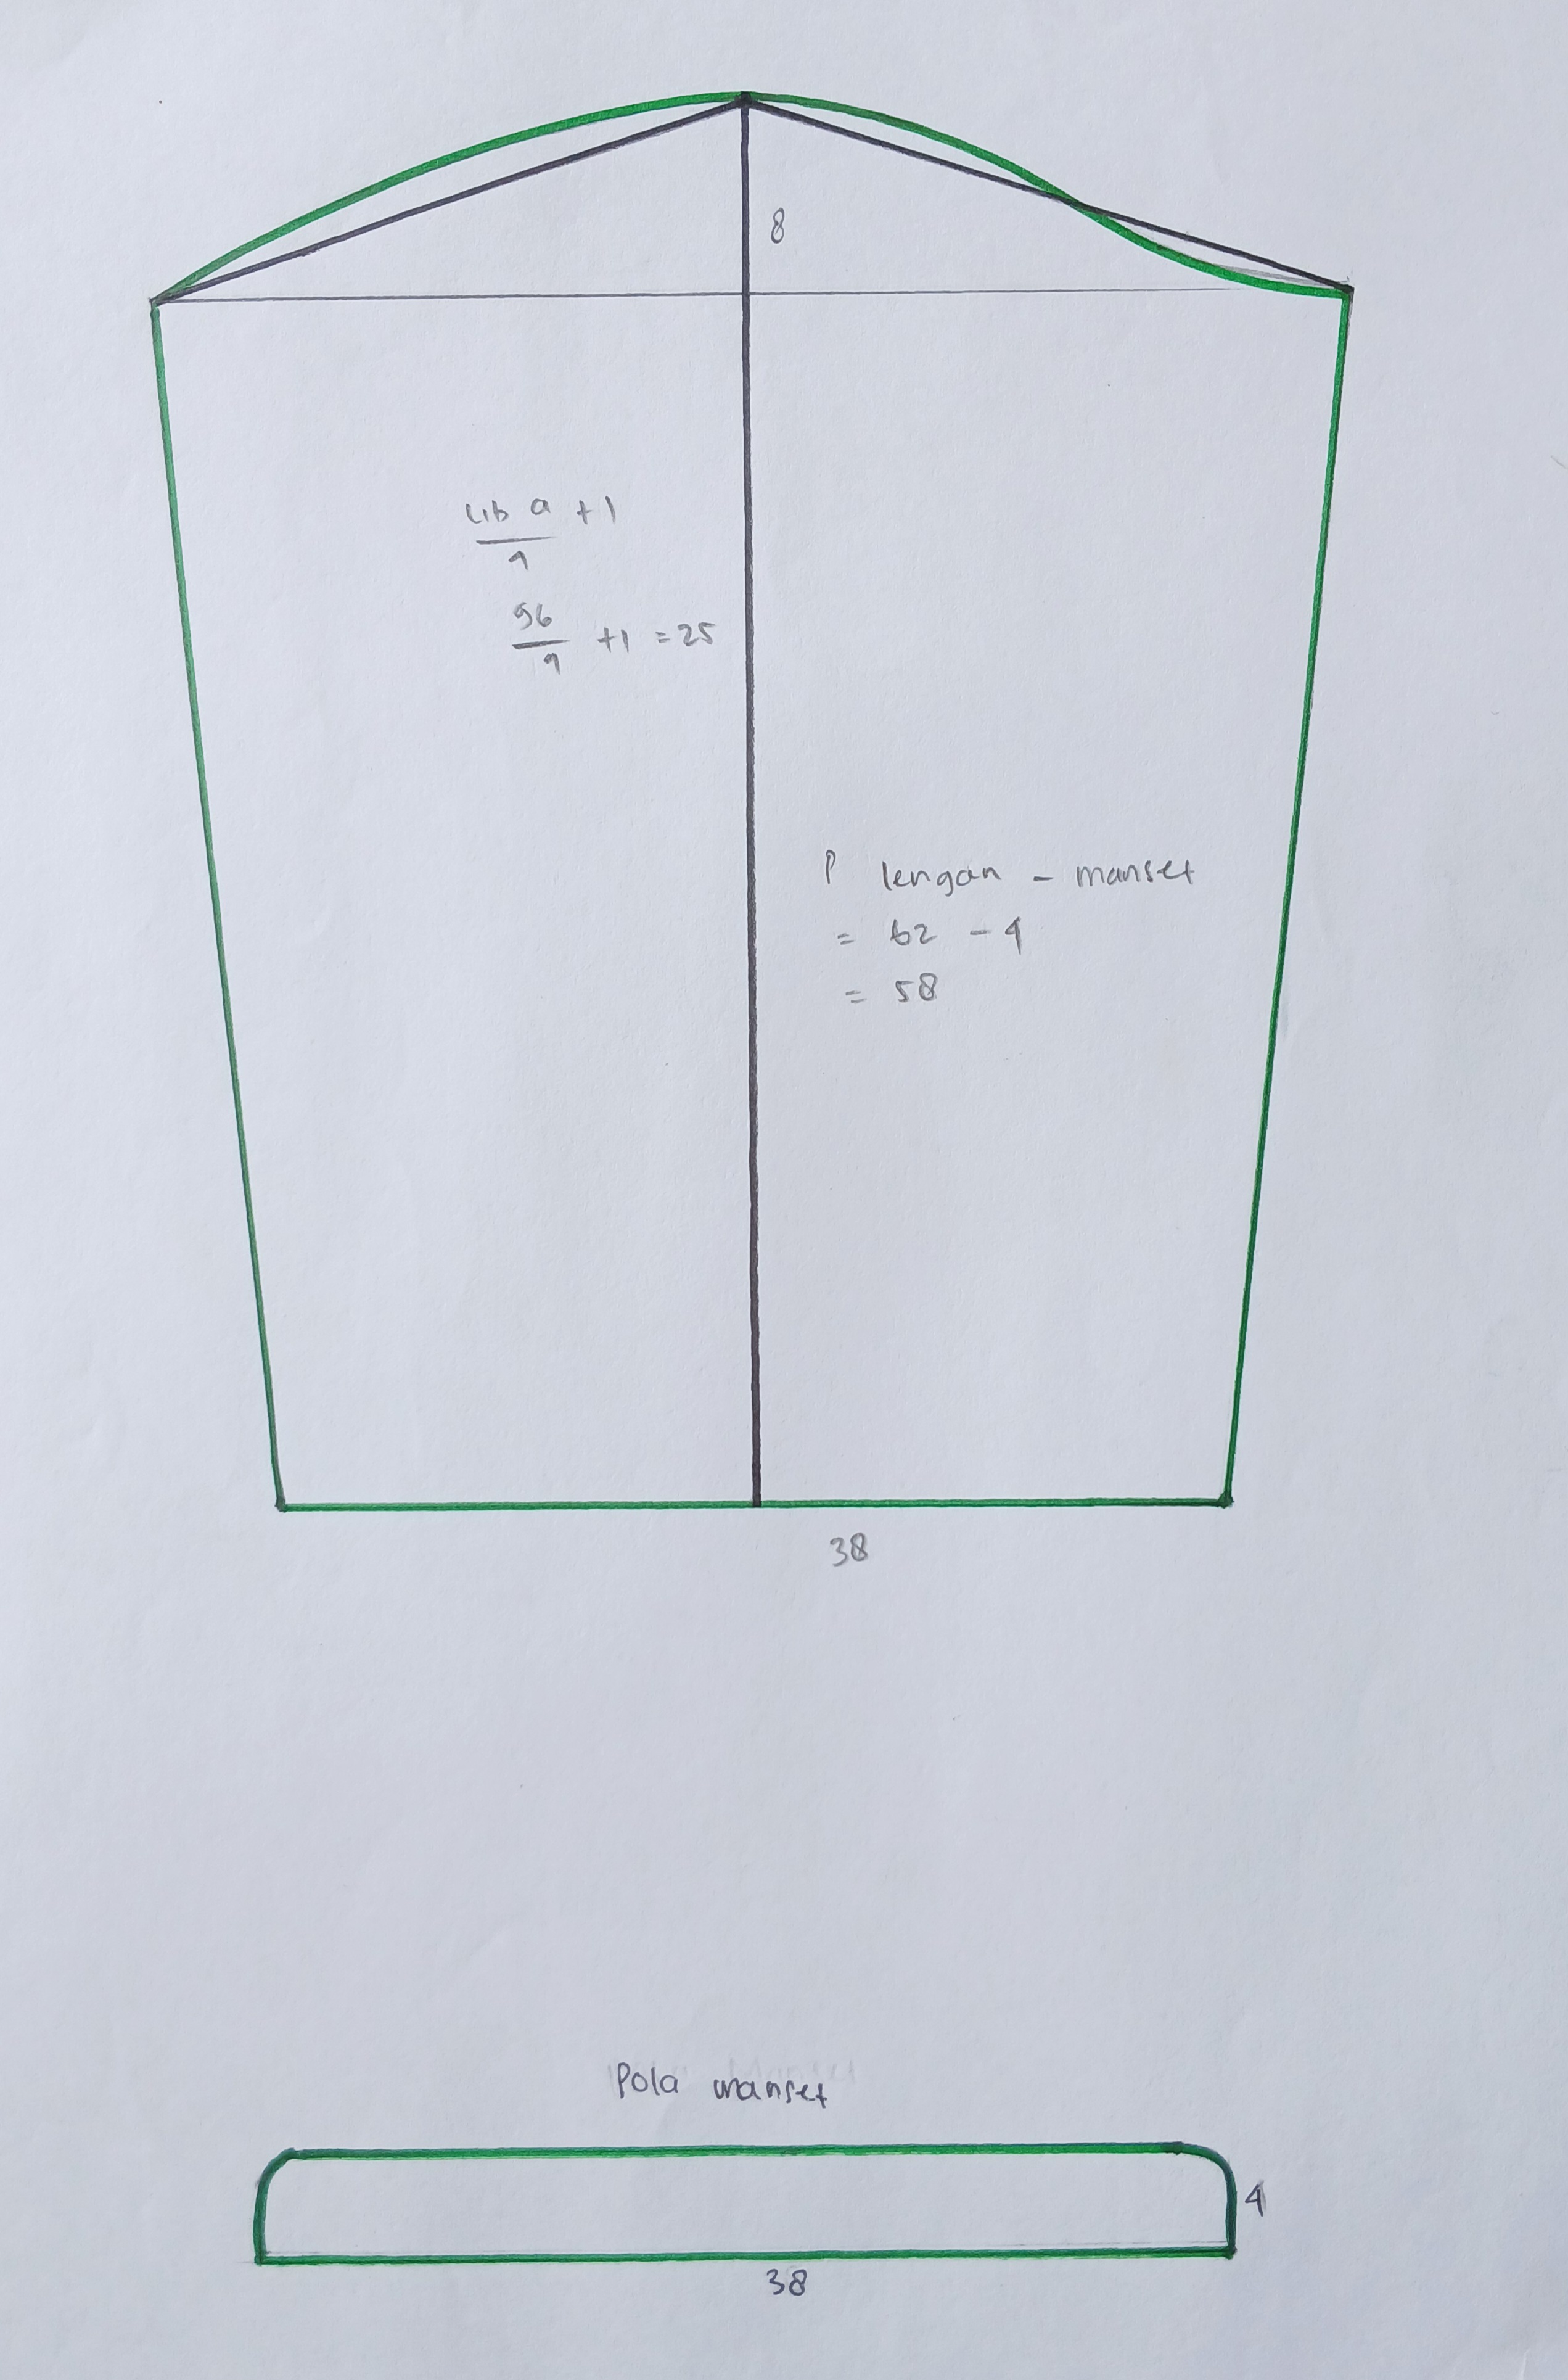 8
lib a + 1
4
96
4
+1 = 25
P lengan - manset
= 62 - 4
= 58
38
Pola manset
4
38